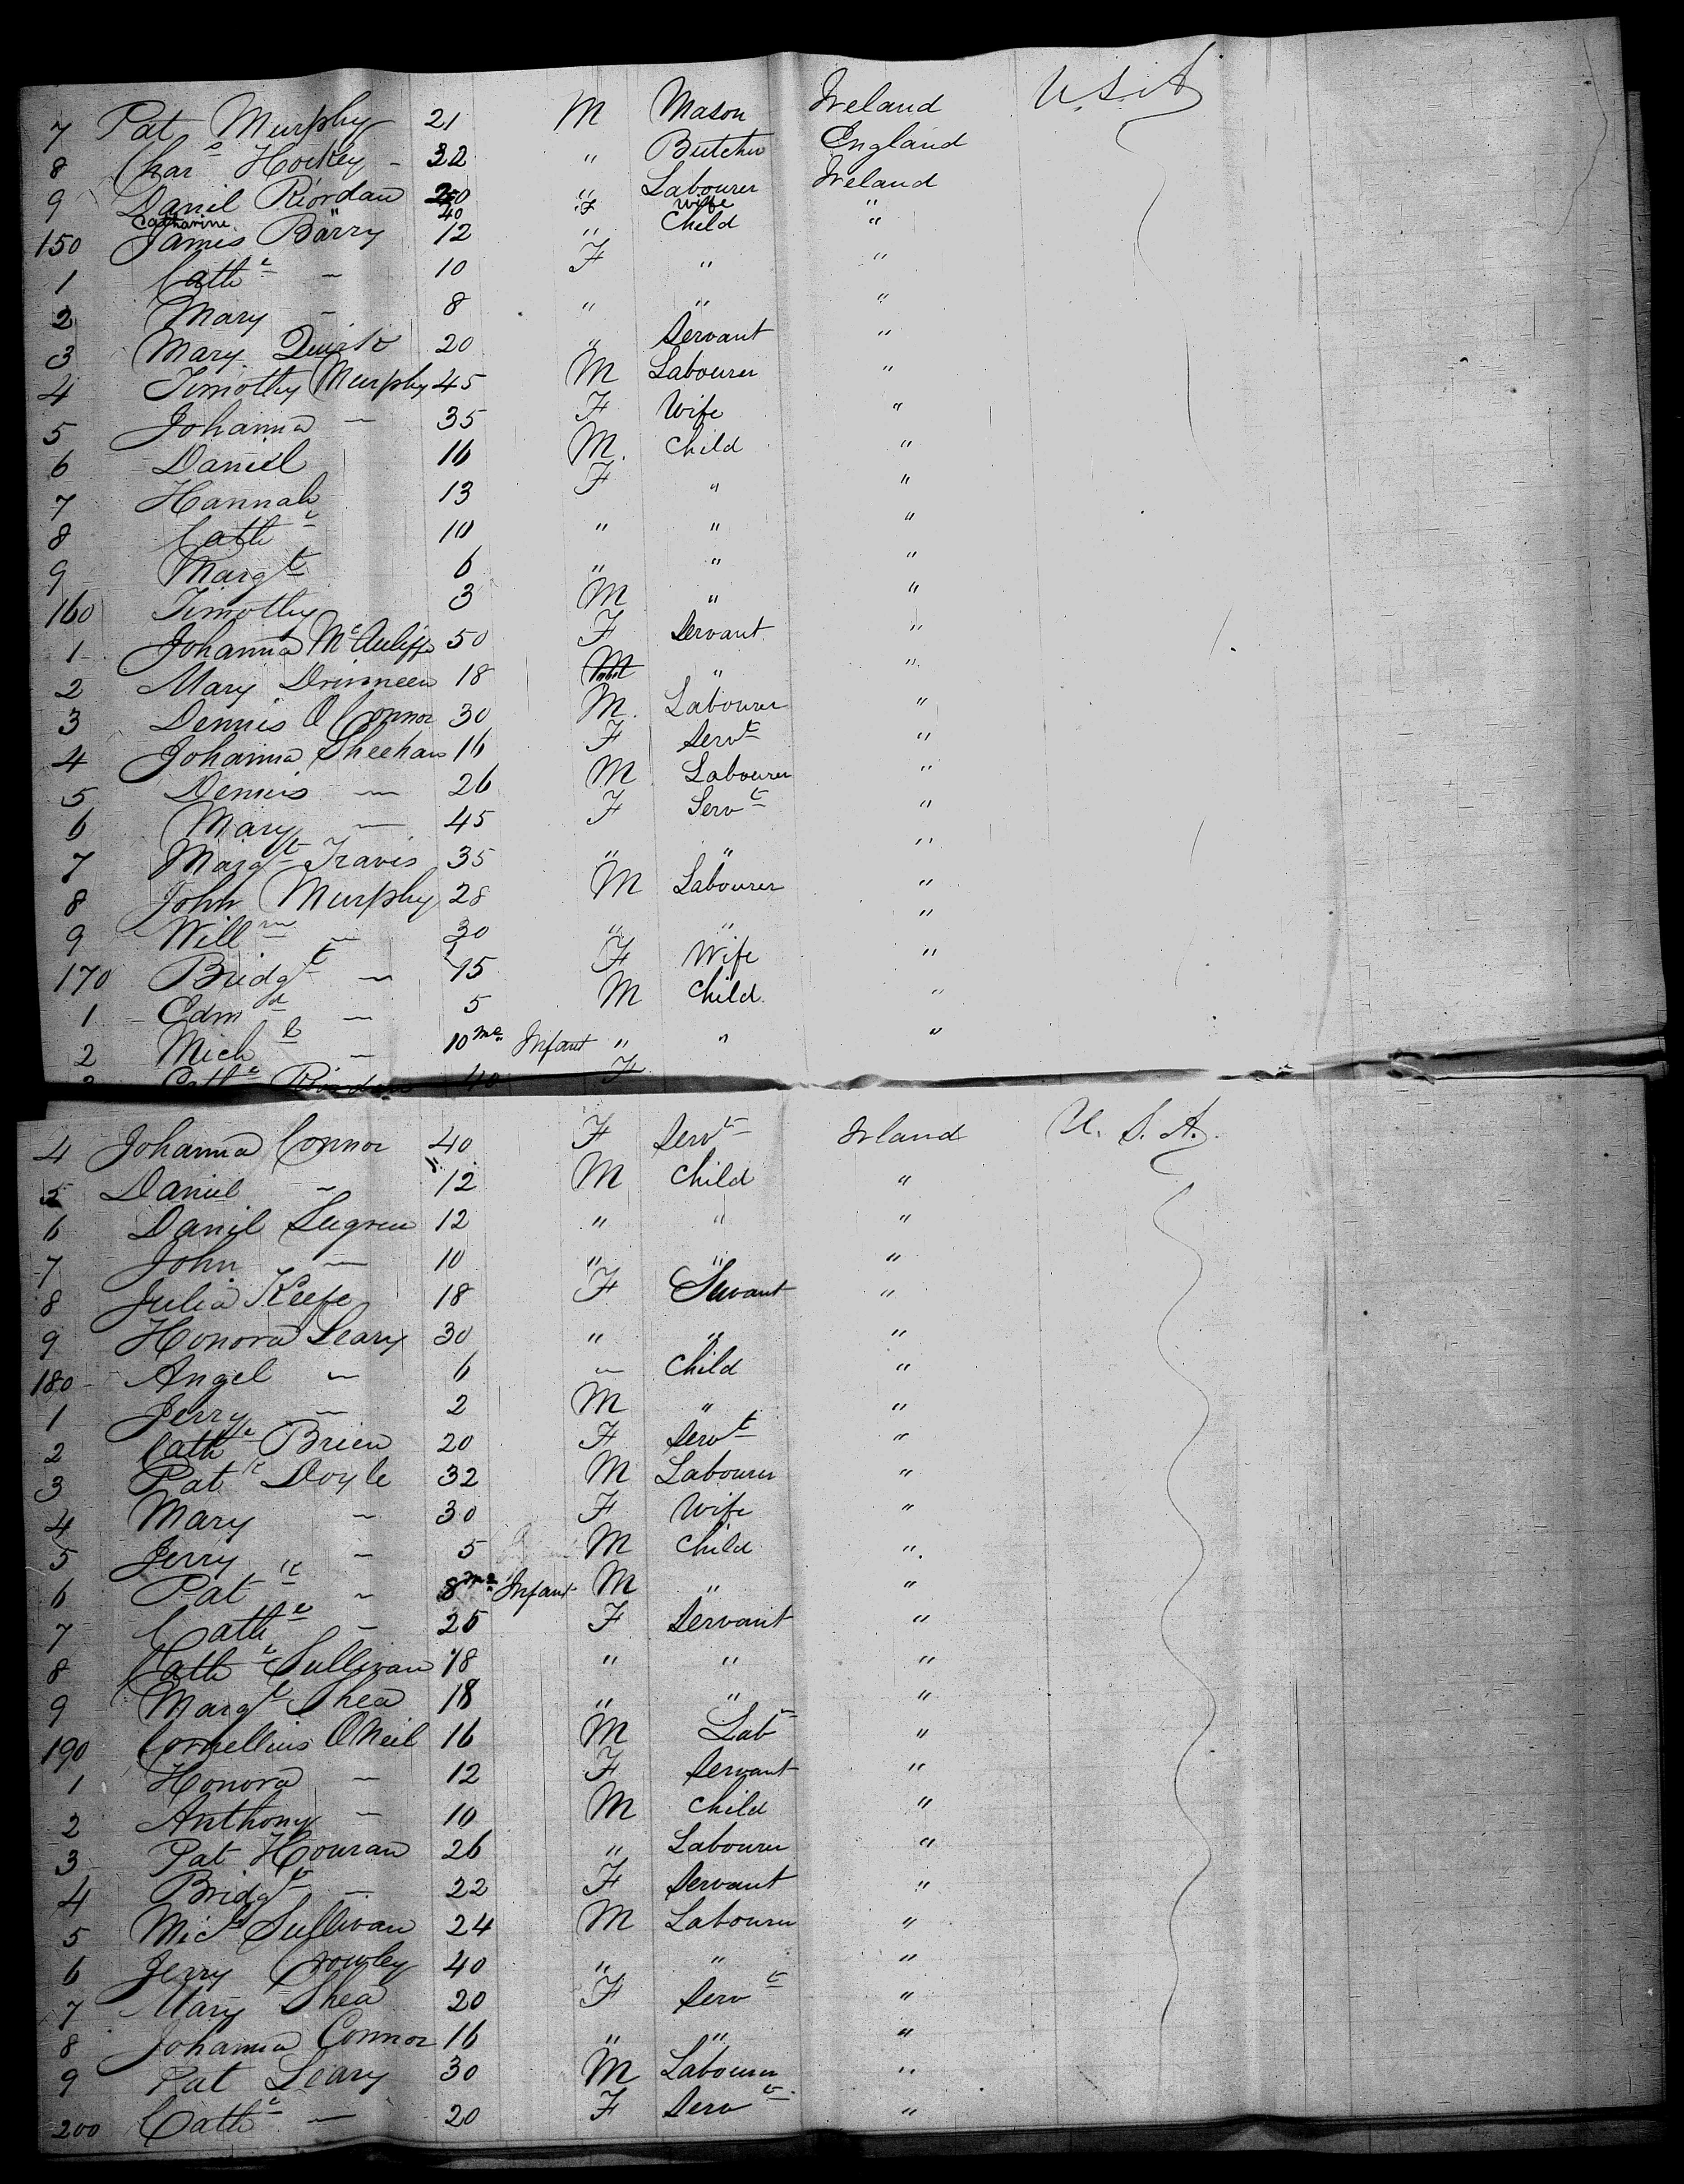 7 Pat Murphy 21 M Mason Ireland U.S.A
8 Chars Hockey - 32 " Butcher England
9 Daniel Riordan 20 " Labourer Ireland
Catharine " 40 F Wife "
150 James Barry 12 " Child "
1 Cathe — 10 F " "
2 Mary — 8 " " "
3 Mary Quirk 20 " Servant "
4 Timothy Murphy 45 M Labourer "
5 Johanna — 35 F Wife "
6 Daniel 16 M. Child "
7 Hannah 13 F " "
8 Cathe 10 " " "
9 Margt 6 " " "
160 Timothy 3 M " "
1 Johanna McAuliffe 50 F Servant "
2 Mary Drinneen 18 " "
3 Dennis O Connor 30 M Labourer "
4 Johanna Sheehan 16 F Servt "
5 Dennis — 26 M Labourer "
6 Mary — 45 F Servt "
7 Margt Travis 35 " " "
8 John Murphy 28 M Labourer "
9 Willm — 30 " " "
170 Bridgt — F Wife "
1 Edmd — 5 M Child "
2 Michl — 10 mo Infant " " "
Cathe Riordan 40 F
4 Johanna Connor 40 F Servt Irland U.S.A.
5 Daniel — 12 M Child "
6 Danil Sugrue 12 " " "
7 John — 10 " " "
8 Julia Keefe 18 F Servant "
9 Honora Leary 30 " " "
180 Angel — 6 — Child "
1 Jerry — 2 M " "
2 Cathe Brien 20 F Servt "
3 Patk Doyle 32 M Labourer "
4 Mary — 30 F Wife "
5 Jerry — 5 M Child "
6 Patk — 8 mo Infant M " "
7 Cathe — 25 F Servant "
8 Cathe Sullivan 18 " " "
9 Margt Shea 18 " " "
190 Cornellius ONeil 16 M Lab "
1 Honora — 12 F Servant "
2 Anthony — 10 M Child "
3 Pat Houran 26 " Labourer "
4 Bridgt — 22 F Servant "
5 Michl Sullivan 24 M Labourer "
6 Jerry Crowley 40 " " "
7 Mary Shea 20 F Servt "
8 Johanna Connor 16 " " "
9 Pat Leary 30 M Labourer "
200 Cathe — 20 F Servt "